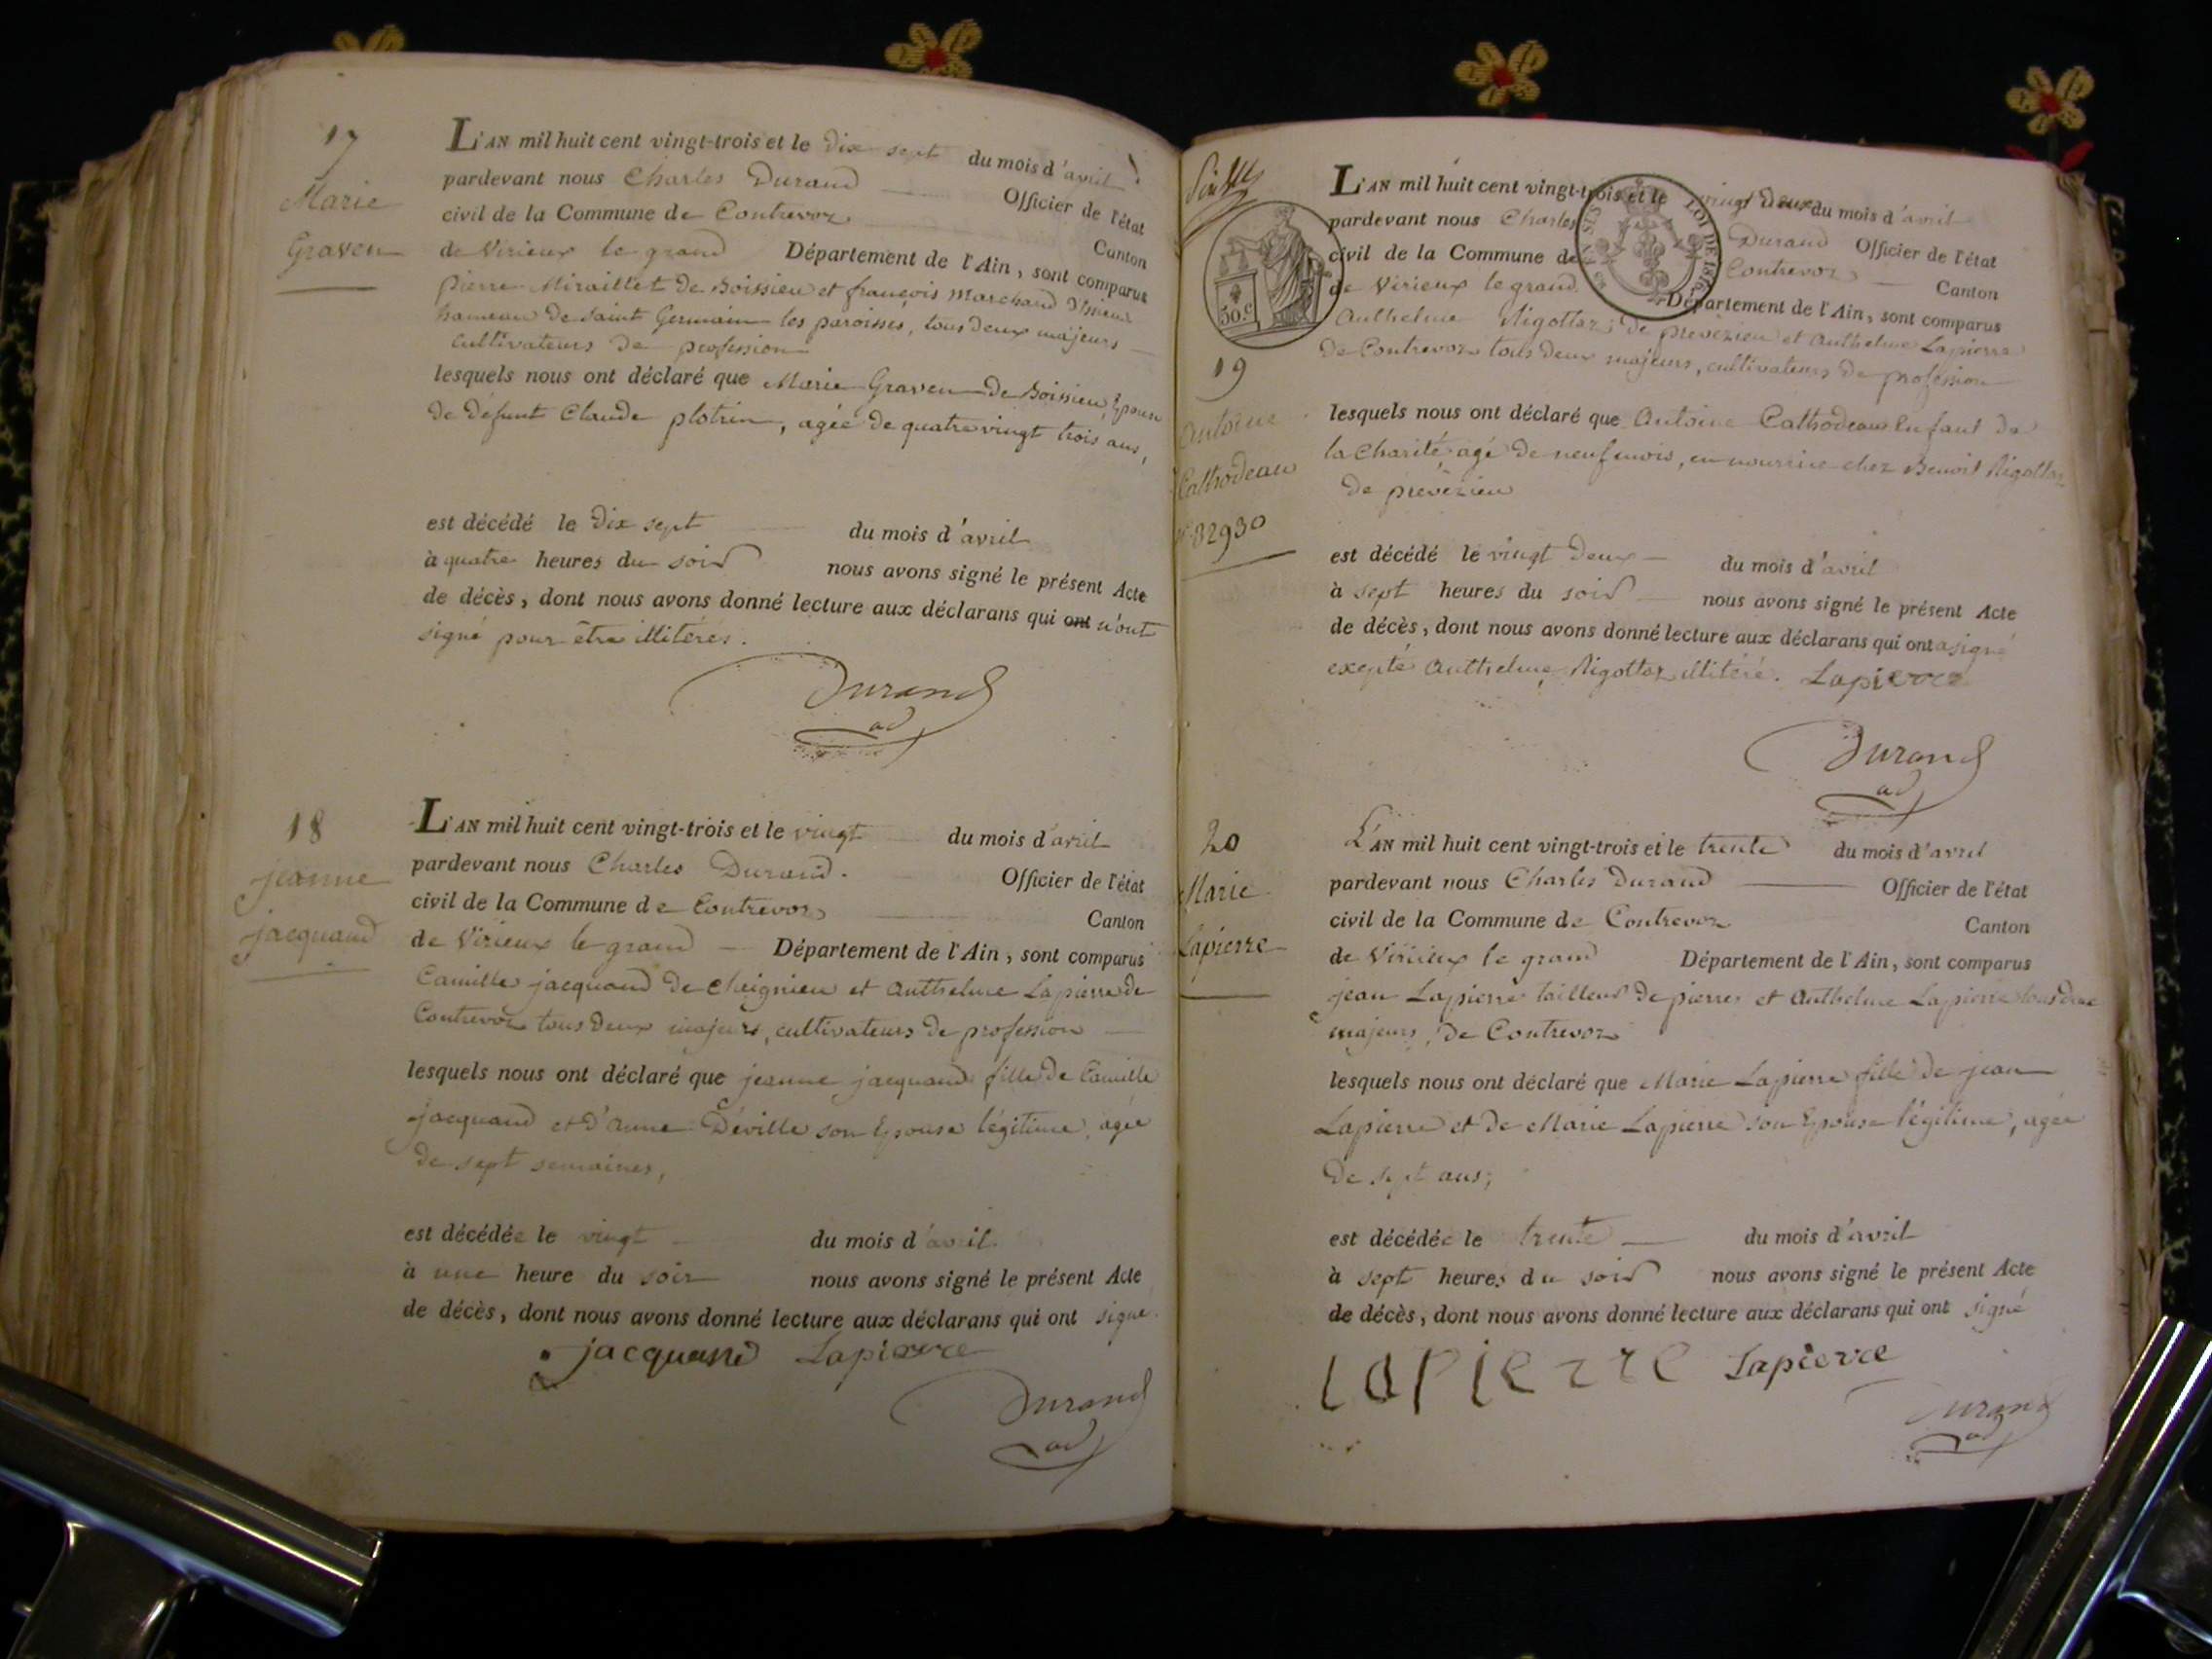 17
Marie
Graven
L'AN mil huit cent vingt-trois et le dix sept du mois d'avril
pardevant nous Charles Durand Officier de l'état
civil de la Commune de Contrevoz Canton
de Virieux le grand Département de l'Ain, sont comparus
pierre Miraillet de Boissieu et françois Marchand
hameau de Saint Germain les paroisses, tous deux majeurs
cultivateurs de profession
lesquels nous ont déclaré que Marie Graven de Boissieu, Epouse
de défunt Claude plotrin, agée de quatre vingt trois ans,
est décédé le Dix sept du mois d'avril
à quatre heures du soir nous avons signé le présent Acte
de décès, dont nous avons donné lecture aux déclarans qui ont n'ont
signé pour être illitérés.
Durand
ad
18
jeanne
jacquand
L'AN mil huit cent vingt-trois et le vingt du mois d'avril
pardevant nous Charles Durand. Officier de l'état
civil de la Commune de Contrevoz Canton
de Virieux le grand Département de l'Ain, sont comparus
Camille jacquand de Cheignieu et Anthelme Lapierre de
Contrevoz tous deux majeurs, cultivateurs de profession
lesquels nous ont déclaré que jeanne jacquand fille de Camille
jacquand et d'anne Déville son Epouse légitime, agée
de sept semaines,
est décédée le vingt du mois d'avril
à une heure du soir nous avons signé le présent Acte
de décès, dont nous avons donné lecture aux déclarans qui ont signé.
jacquand Lapierre
Durand
ad
50.c
LOI DE 1816
19
Antoine
Cathodeau
32930
L'AN mil huit cent vingt-trois et le vingt deux du mois d'avril
pardevant nous Charles Durand Officier de l'état
civil de la Commune de Contrevoz Canton
de Virieux le grand Département de l'Ain, sont comparus
Anthelme Rigottaz de prévézieu et Anthelme Lapierre
de Contrevoz tous deux majeurs, cultivateurs de profession
lesquels nous ont déclaré que Antoine Cathodeau Enfant de
la Charité, agé de neuf mois, en nourrice chez Benoit Rigottaz
de prévézieu
est décédé le vingt deux du mois d'avril
à sept heures du soir nous avons signé le présent Acte
de décès, dont nous avons donné lecture aux déclarans qui ont signé
exepté Anthelme Rigottaz illitéré. Lapierre
Durand
ad
20
Marie
Lapierre
L'AN mil huit cent vingt-trois et le trente du mois d'avril
pardevant nous Charles Durand Officier de l'état
civil de la Commune de Contrevoz Canton
de Virieux le grand Département de l'Ain, sont comparus
jean Lapierre tailleur de pierres et Anthelme Lapierre tous deux
majeurs, de Contrevoz
lesquels nous ont déclaré que Marie Lapierre fille de jean
Lapierre et de Marie Lapierre son Epouse légitime, agée
de sept ans,
est décédée le trente du mois d'avril
à sept heures du soir nous avons signé le présent Acte
de décès, dont nous avons donné lecture aux déclarans qui ont signé
LAPierre Lapierre
Durand
ad